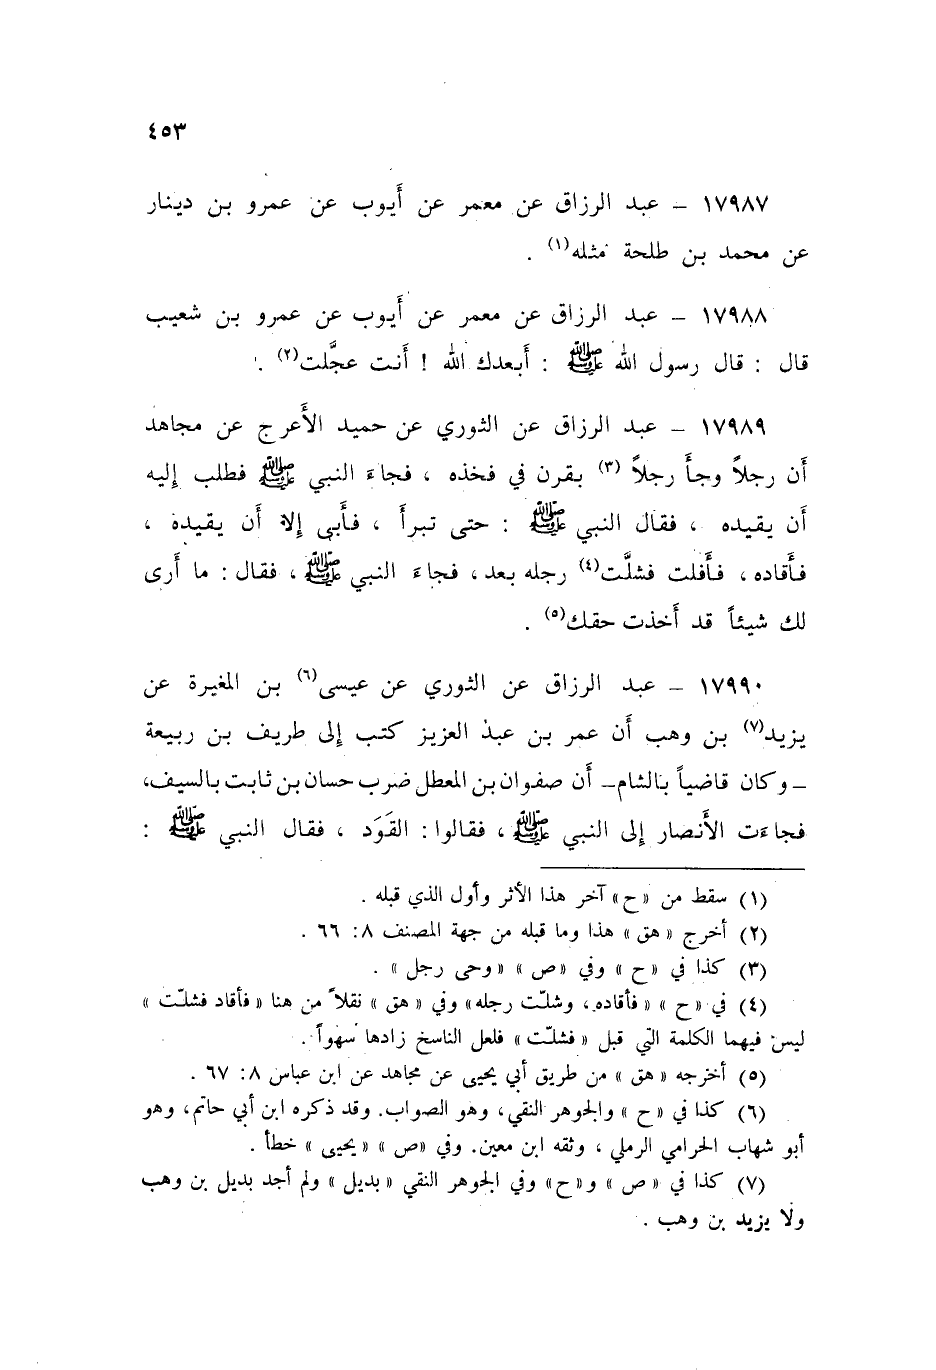 ٤٥٣
١٧٩٨٧ – عبد الرزاق عن معمر عن أَيوب عن عمرو بن دينار
عن محمد بن طلحة مثله(١) .
١٧٩٨٨ – عبد الرزاق عن معمر عن أَيوب عن عمرو بن شعيب
قال : قال رسول الله ﷺ : أَبعدك الله ! أَنت عجَّلت(٢) .
١٧٩٨٩ – عبد الرزاق عن الثوري عن حميد الأَعرج عن مجاهد
أَن رجلاً وجأَ رجلاً (٣) بقرن في فخذه ، فجاءَ النبي ﷺ فطلب إِليه
أَن يقيده ، فقال النبي ﷺ : حتى تبرأَ ، فأَبى إِلا أَن يقيده ،
فأَقاده ، فأَفلت فشلَّت(٤) رجله بعد ، فجاءَ النبي ﷺ ، فقال : ما أَرى
لك شيئاً قد أَخذت حقك(٥) .
١٧٩٩٠ – عبد الرزاق عن الثوري عن عيسى(٦) بن المغيرة عن
يزيد(٧) بن وهب أَن عمر بن عبد العزيز كتب إِلى طريف بن ربيعة
– وكان قاضياً بالشام – أَن صفوان بن المعطل ضرب حسان بن ثابت بالسيف،
فجاءَت الأَنصار إِلى النبي ﷺ ، فقالوا : القَوَد ، فقال النبي ﷺ :
(١) سقط من «ح» آخر هذا الأثر وأول الذي قبله .
(٢) أخرج «هق» هذا وما قبله من جهة المصنف ٨: ٦٦ .
(٣) كذا في «ح» وفي «ص» «وحى رجل» .
(٤) في «ح» «فأقاده، وشلّت رجله» وفي «هق» نقلاً من هنا «فأقاد فشلّت»
ليس فيهما الكلمة التي قبل «فشلّت» فلعل الناسخ زادها سهواً .
(٥) أخرجه «هق» من طريق أبي يحيى عن مجاهد عن ابن عباس ٨: ٦٧ .
(٦) كذا في «ح» والجوهر النقي، وهو الصواب. وقد ذكره ابن أبي حاتم، وهو
أبو شهاب الحرامي الرملي ، وثقه ابن معين. وفي «ص» «يحيى» خطأ .
(٧) كذا في «ص» و«ح» وفي الجوهر النقي «بديل» ولم أجد بديل بن وهب
ولا يزيد بن وهب .